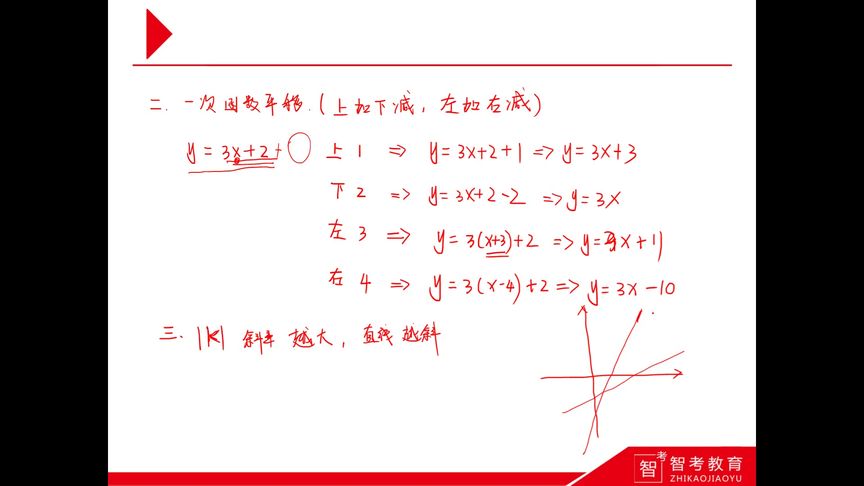 二. 一次函数平移.(上加下减, 左加右减)
y = 3x+2+ 上 1 => y = 3x+2+1 => y = 3x+3
下 2 => y = 3x+2-2 => y = 3x
左 3 => y = 3(x+3)+2 => y = 3x+11
右 4 => y = 3(x-4)+2 => y = 3x-10
三. |k| 斜率 越大, 直线越斜
智考
智考教育
ZHIKAOJIAOYU